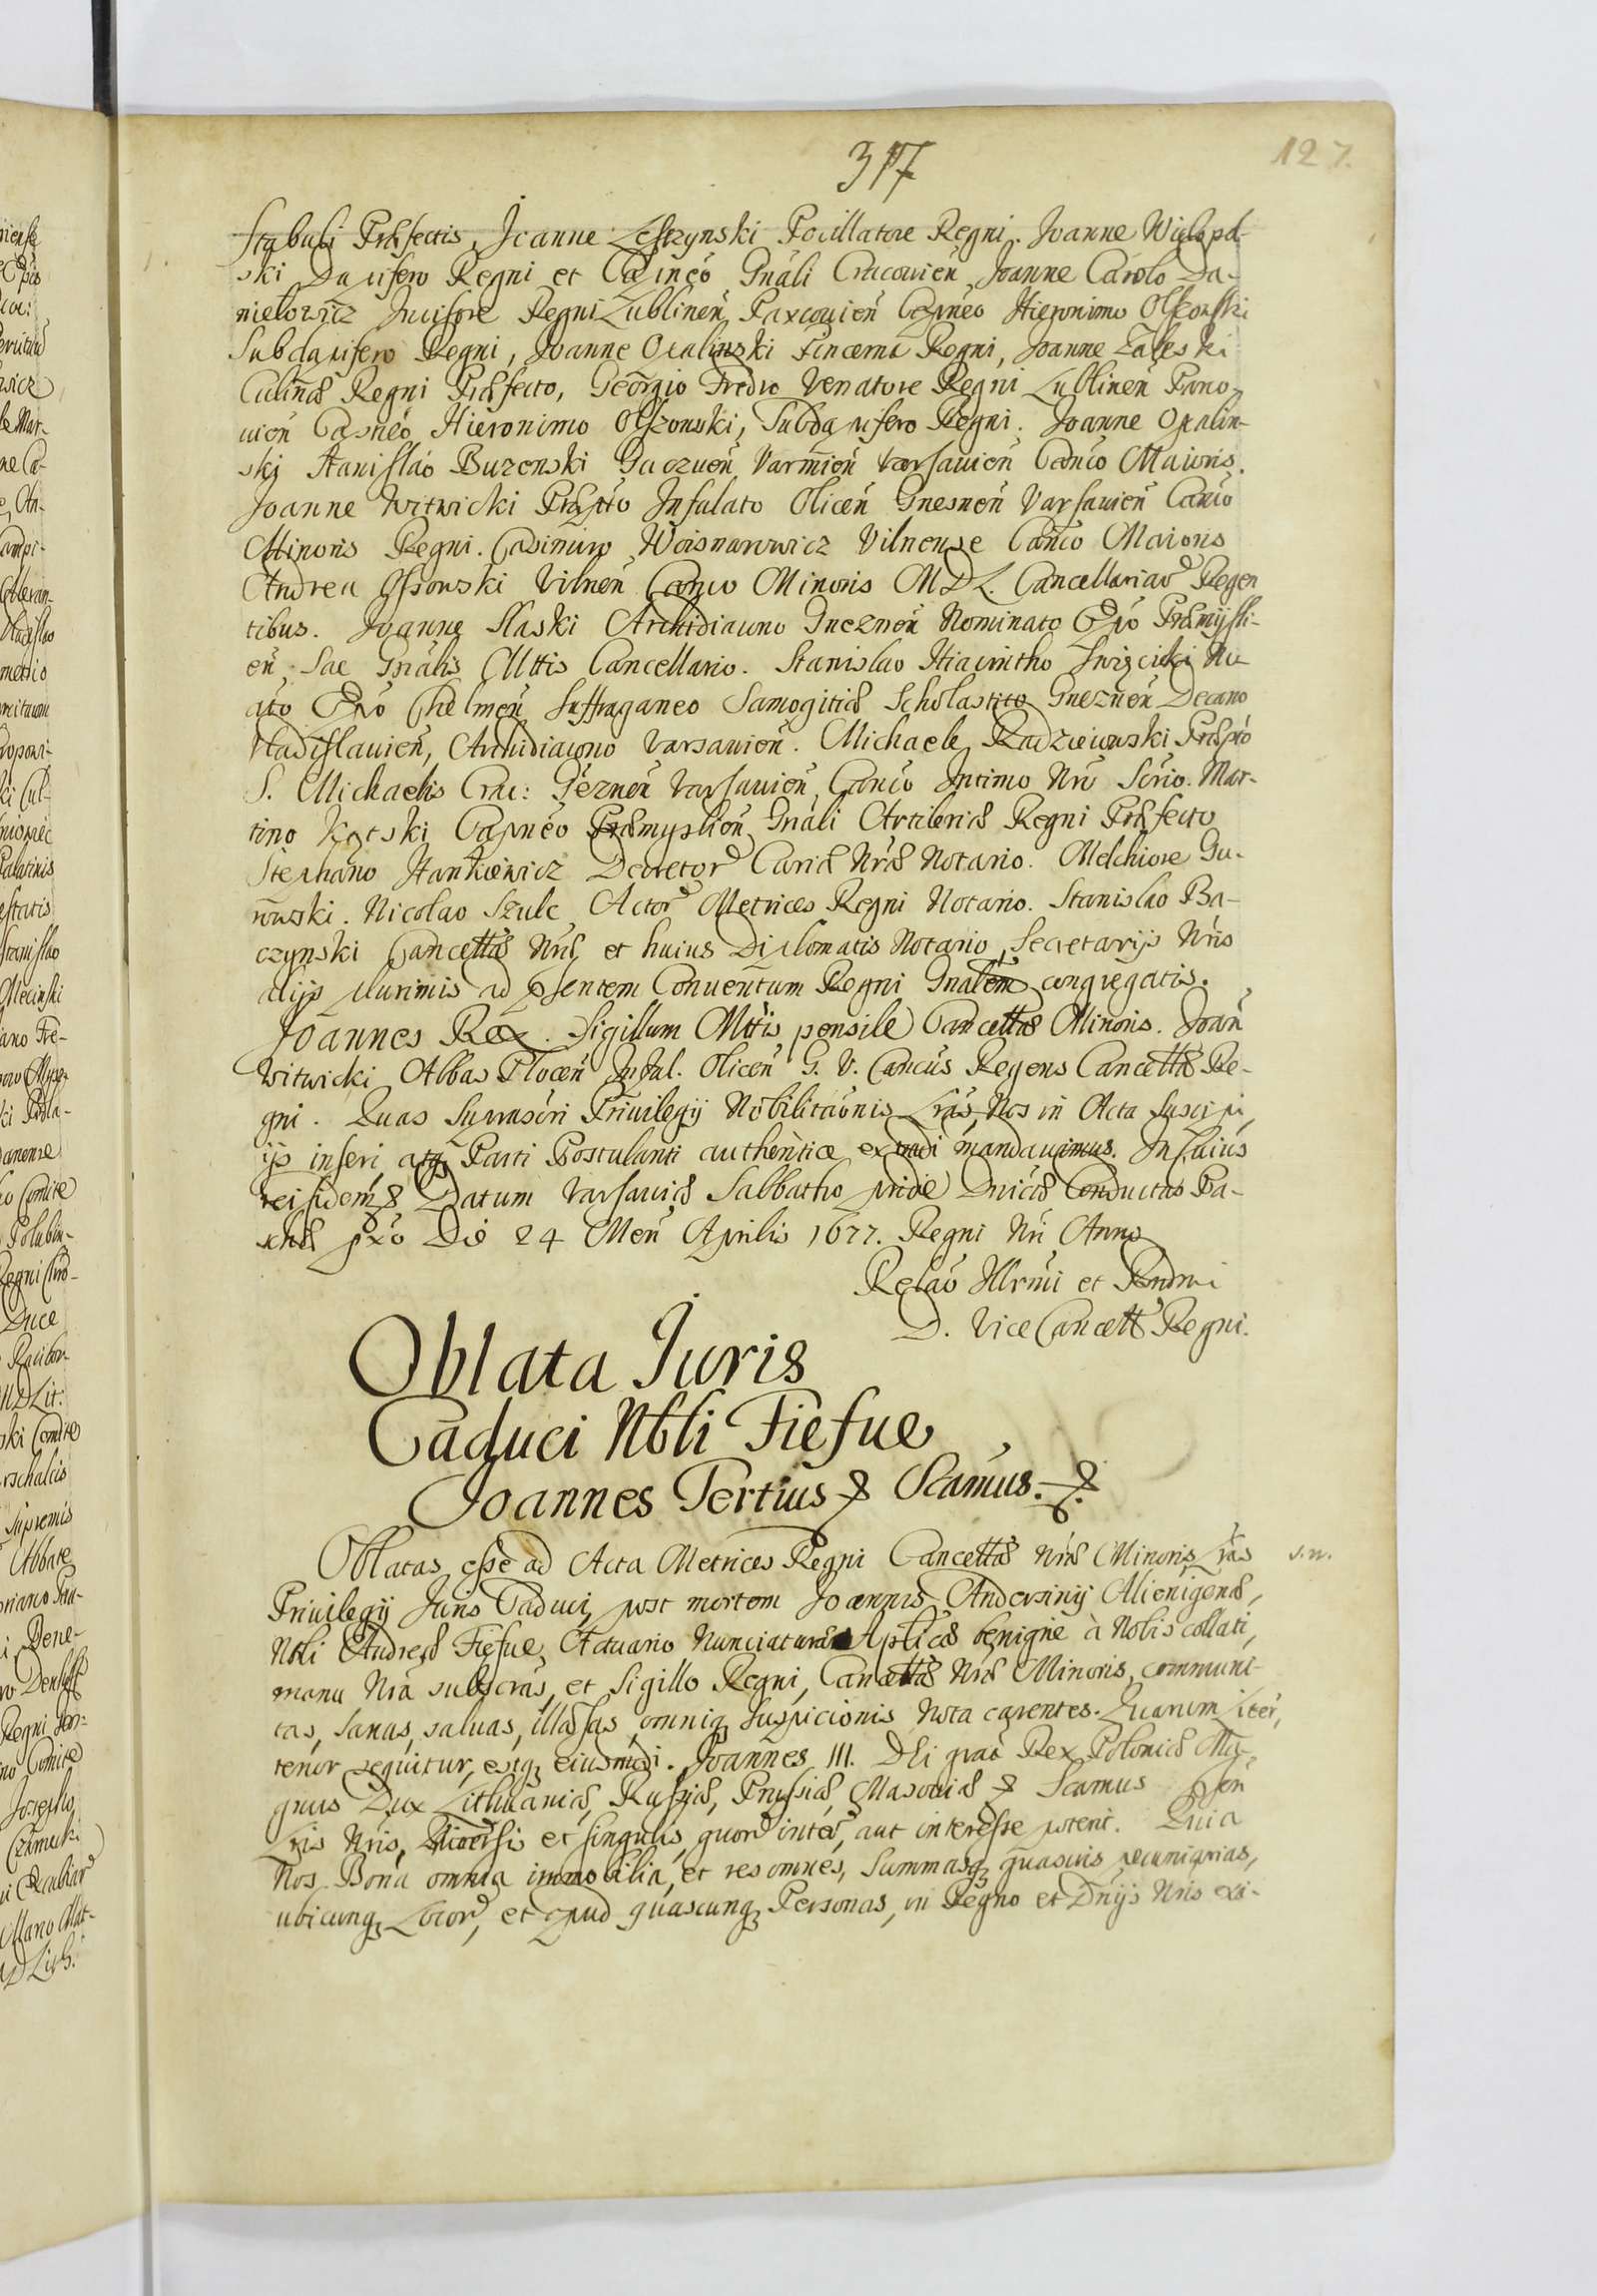 317
127.
Stabuli Præfectis, Joanne Leszczynski Pocillatore Regni. Joanne Wielopol-
ski Dapifero Regni et Capineo Gnáli Cracouień Joanne Carolo Da-
nielowicz Incisore Regni Lublineń Parcouień Capneo Hieronimo Olszowski
Subdapifero Regni, Joanne Opalinski Pincerna Regni, Joanne Zaleski
Culinæ Regni Præfecto, Georgio Fredro Venatore Regni Lublineń Pano-
uień Capneo Hieronimo Olszonski, Subdapifero Regni. Joanne Opalin-
ski Stanislao Buzenski Varmień Varsauień Canco Maioris.
Joanne Witwicki Infulato Oliceń Gnesneń Varsauień Canco
Minoris Regni. Casimiro Woisnarowicz Vilnense Canco Maioris
Andrea Vilneń Canco Minoris MDL. Cancellariar Regen
tibus. Joanne Slaski Archidiacono Gnezneń Nominato Epo Præmijsli-
eń, Sae Gnalis Mttis Cancellario. Stanislao Hiacintho Swięcicki No-
ato Epo Chelmeń Suffraganeo Samogitiæ Scholastico Gnezneń Decano
Vladislauień, Archidiacono Varsauień. Michaele Radzieiowski Præpto
S. Michaelis Crac: Gezneń Varsauień Canco Intimo Nro Scrio. Mar-
tino Kątski Capneo Præmyslień Gnáli Artileriæ Regni Præfecto
Stephano Hankiewicz Decretor Curiæ Nræ Notario. Melchiore Gu-
rowski. Nicolao Szulc Actor Metrices Regni Notario. Stanislao Ba-
czynski Cancellæ Nræ et huius Diplomatis Notario, Secretarijs Nris
alijs plurimis ad psentem Conuentum Regni Gnalem congregatis.
Joannes Rex. Sigillum Mttis pensile Cancellæ Minoris. Joań
Witwicki Abbas Ploceń Inful. Oliceń G. V. Cancus Regens Cancellæ Re-
gni. Quas Suprascri Priuilegij Nobilitaonis Lras Nos in Acta suscipi,
ijs inseri, atq Parti Postulanti authentice extradi mandauimus. In Cuius
rei fidem & Datum Varsauiæ Sabbatho pridie Dnicæ Conductus Pa-
schæ pxo Die 24 Meń Aprilis 1677. Regni Nri Anno
Relao Illrmi et Rndmi
D. Vice Cancell Regni.
Oblata Juris
Caduci Nbli Fiefue
Joannes Tertius & Scamus. &
Oblatas esse ad Acta Metrices Regni Cancellæ Nræ Minoris Lras
s.n.
Priuilegij Juris Caduci, post mortem Joannis Andersinij Alienigenæ,
Nbli Andreæ Fiefue Actuario Nunciaturæ Aplicæ benigne à Nobis collati,
manu Nra subscras, et Sigillo Regni, Cancellæ Nræ Minoris, communi-
tas, sanas, saluas, illæsas, omniq suspicionis nota carentes. Quarum Liter,
tenor sequitur, estq eiusmodi. Joannes III. Dei graa Rex Poloniæ Ma-
gnus Dux Lithuaniæ, Russiæ, Prussiæ, Masouiæ & Scamus pseń
Lris Nris, Vniversis et singulis, quor inter, aut interesse poterit. Quia
Nos Bona omnia immobilia, et res omnes, Summasq quasuis pecuniarias,
ubicunq Locor, et apud quascunq Personas, in Regno et Dnijs Nris exi-